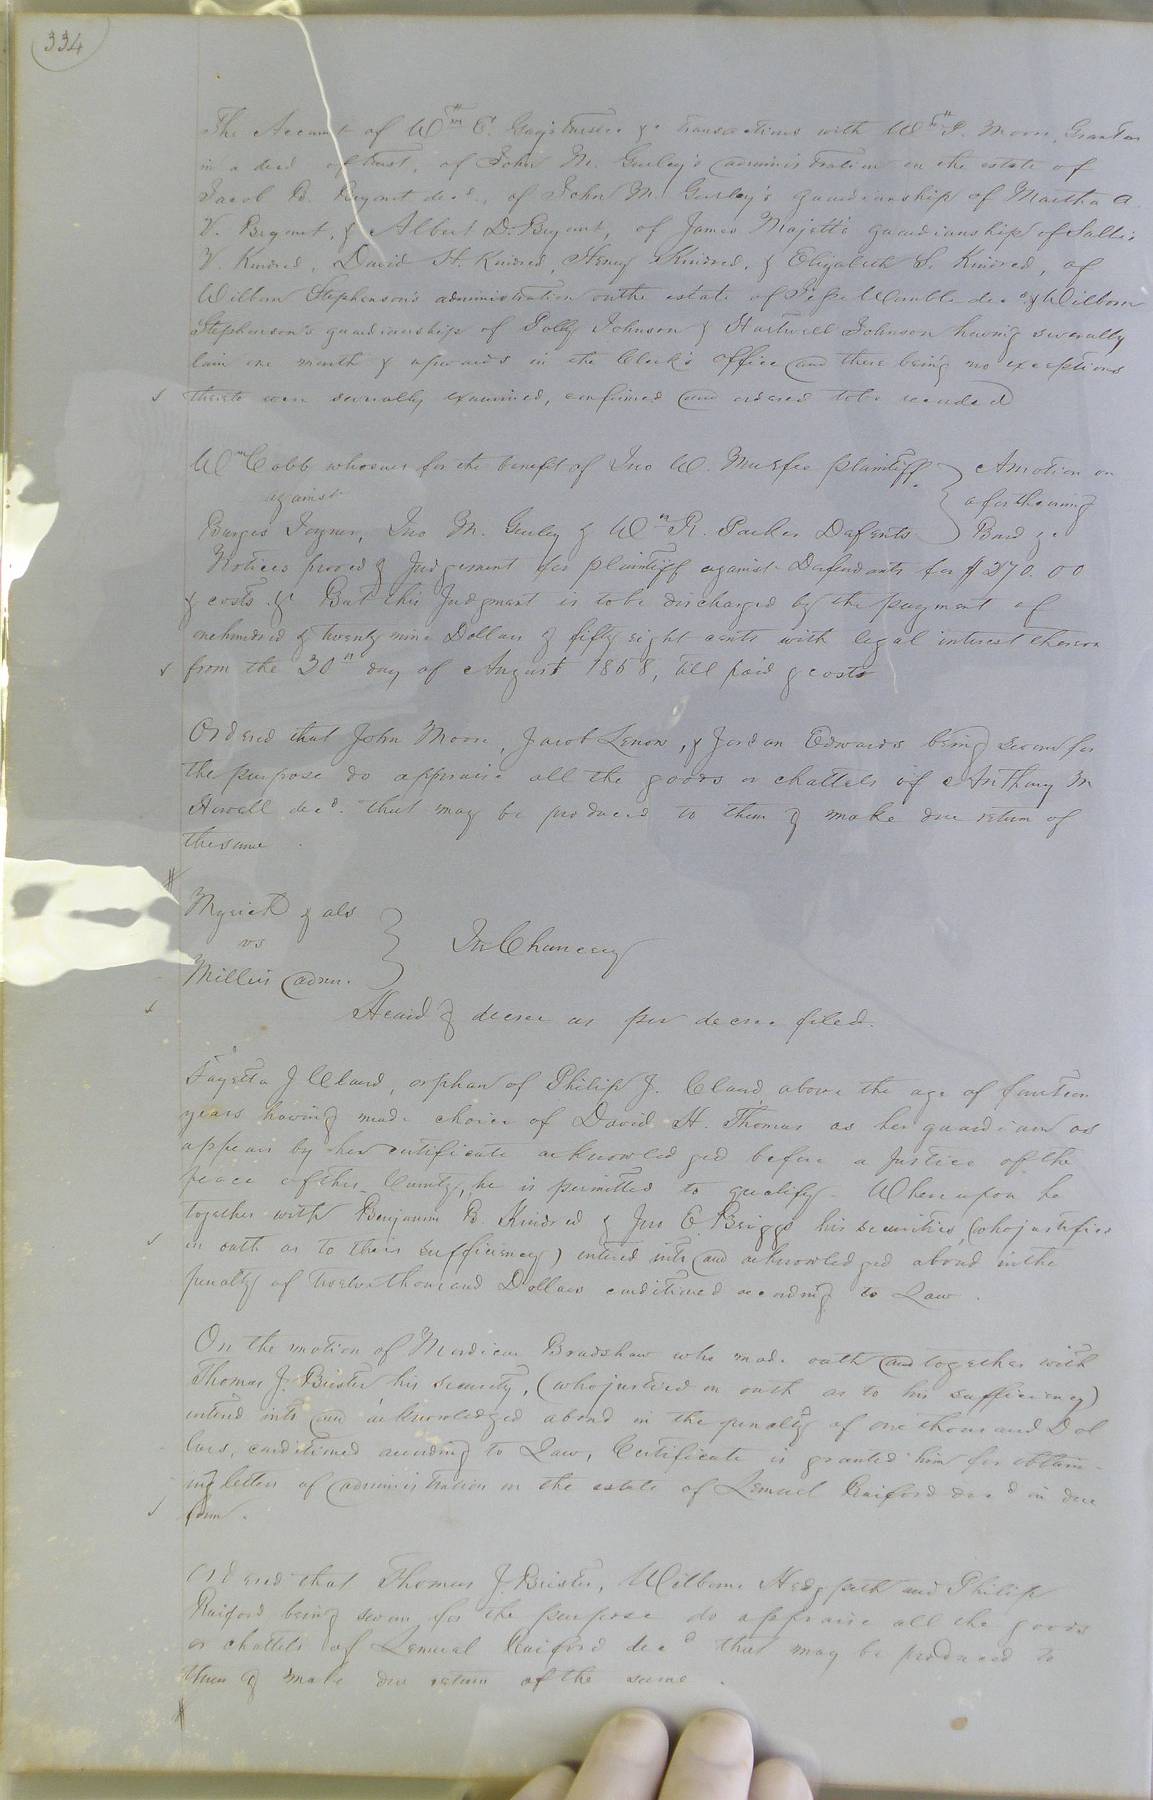 334
The Account of Wm E. Gay's trustee &c transactions with Wm J. Moore, Grantor
in a deed of trust, of John M. Gurley's administration on the estate of
Jacob B. Bryant decd., of John M. Gurley's guardianship of Martha A
V. Bryant, & Albert D. Bryant, of James Majett's guardianship of Sallie
V. Kindred, David H. Kindred, Henry Kindred, & Elizabeth S. Kindred, of
Wilborn Stephenson's administration on the estate of Womble decd & Wilborn
Stephenson's guardianship of Polly Johnson & Hartwell Johnson having severally
lain one month & upwards in the Clerk's Office and there being no exceptions
thereto were severally examined, confirmed and ordered to be recorded
Wm Cobb who sues for the benefit of Jno W. Murfee plaintiff } A Motion on
against } a forthcoming
Burges Joyner, Jno M. Gurley & Wm R. Parker Defents } Bond &c
Notices proved & Judgement for plaintiff against Defendants for $270.00
& costs &c But this Judgment is to be discharged by the payment of
onehundred & twenty nine Dollars & fifty eight cents with legal interest thereon
from the 30th day of August 1858, till paid & costs
Ordered that John Moore, Jacob Lenow, & Jordan Edwards being sworn for
the purpose do appraise all the goods or chattels of Anthony M
Howell decd. that may be produced to them & make due return of
the same.
Myrick & als
vs } In Chancery
Millers admr.
Heard & decree as per decree filed.
Fayetta J Claud, orphan of Philip J. Claud, above the age of fourteen
years having made choice of David H. Thomas as her guardian as
appears by her certificate acknowledged before a Justice of the
peace of this County, he is permitted to qualify. Whereupon he
together with Benjamin B. Kindred & Jno E. Briggs his securities, (who justifies
on oath as to their sufficiency) entered into and acknowledged a bond in the
penalty of twelve thousand Dollars conditioned according to Law.
On the motion of Mordicai Bradshaw who made oath and together with
Thomas J. Brister his security, (who justified on oath as to his sufficiency)
entered into and acknowledged a bond in the penalty of one thousand Dol
lars, conditioned according to Law, Certificate is granted him for obtain-
ing letters of administration on the estate of Lemuel Raiford decd in due
form.
Ordered that Thomas J. Brister, Wilborne Hedgpeth and Philip
Raiford being sworn for the purpose do appraise all the goods
or chattels of Lemuel Raiford decd that may be produced to
them & make due return of the same.